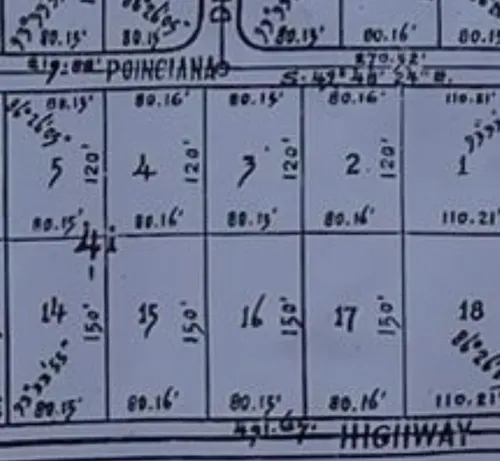 80.15' 80.15' 80.15' 80.16' 80.15
POINCIANA
S. 49° 48' 24" E.
80.15' 80.16' 80.15' 80.16' 110.21'
86°26'05"
5 120' 4 120' 3 120' 2 120' 1
80.15' 80.16' 80.15' 80.16' 110.21'
4
14 150' 15 150' 16 150' 17 150' 18
93°33'55"
80.15' 80.16' 80.15' 80.16' 110.21'
491.67'
HIGHWAY